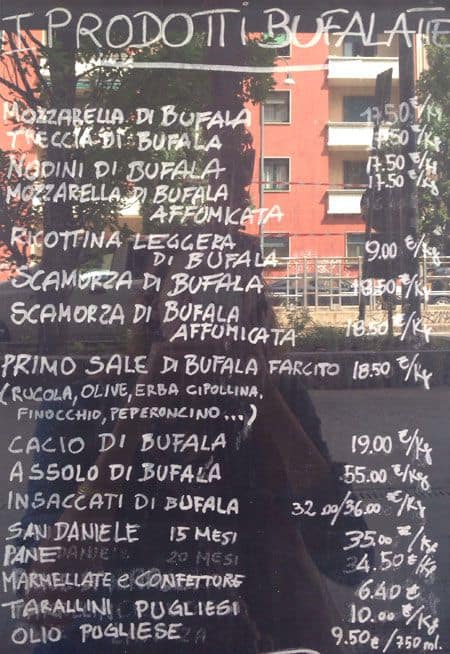 I PRODOTTI BUFALATTE
MOZZARELLA DI BUFALA 17.50 €/Kg
TRECCIA DI BUFALA 17.50 €/Kg
NODINI DI BUFALA 17.50 €/Kg
MOZZARELLA DI BUFALA 17.50 €/Kg
AFFUMICATA
RICOTTINA LEGGERA
DI BUFALA 9.00 €/Kg
SCAMORZA DI BUFALA 18.50 €/Kg
SCAMORZA DI BUFALA
AFFUMICATA 18.50 €/Kg
PRIMO SALE DI BUFALA FARCITO 18.50 €/Kg
(RUCOLA, OLIVE, ERBA CIPOLLINA,
FINOCCHIO, PEPERONCINO...)
CACIO DI BUFALA 19.00 €/Kg
ASSOLO DI BUFALA 55.00 €/Kg
INSACCATI DI BUFALA 32.00/36.00 €/Kg
SAN DANIELE 15 MESI 35.00 €/Kg
PANE DANIELE 20 MESI 34.50 €/Kg
MARMELLATE e CONFETTURE 6.40 €
TARALLINI PUGLIESI 10.00 €/Kg
OLIO PUGLIESE 9.50 €/750 ml.